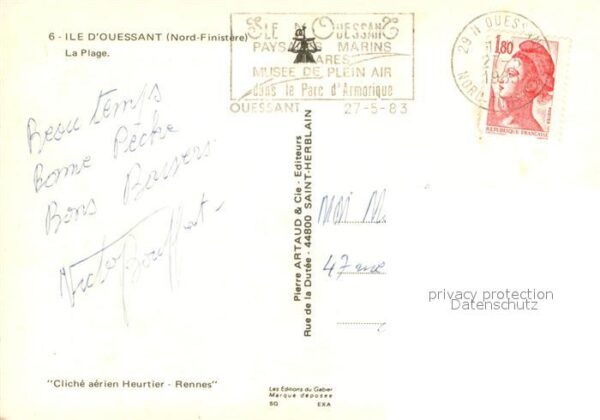 6 - ILE D'OUESSANT (Nord-Finistère)
La Plage.
ILE D'OUESSANT
PAYSAGES MARINS
PHARES
MUSEE DE PLEIN AIR
dans le Parc d'Armorique
OUESSANT 27-5-83
29 N OUESSANT
1,80
REPUBLIQUE FRANÇAISE
Beau temps
Bonne Pêche
Bons Baisers
Pierre ARTAUD & Cie - Editeurs
Rue de la Dutée - 44800 SAINT-HERBLAIN
47
privacy protection
Datenschutz
"Cliché aérien Heurtier - Rennes"
Les Editions du Gabier
Marque déposée
SG EXA